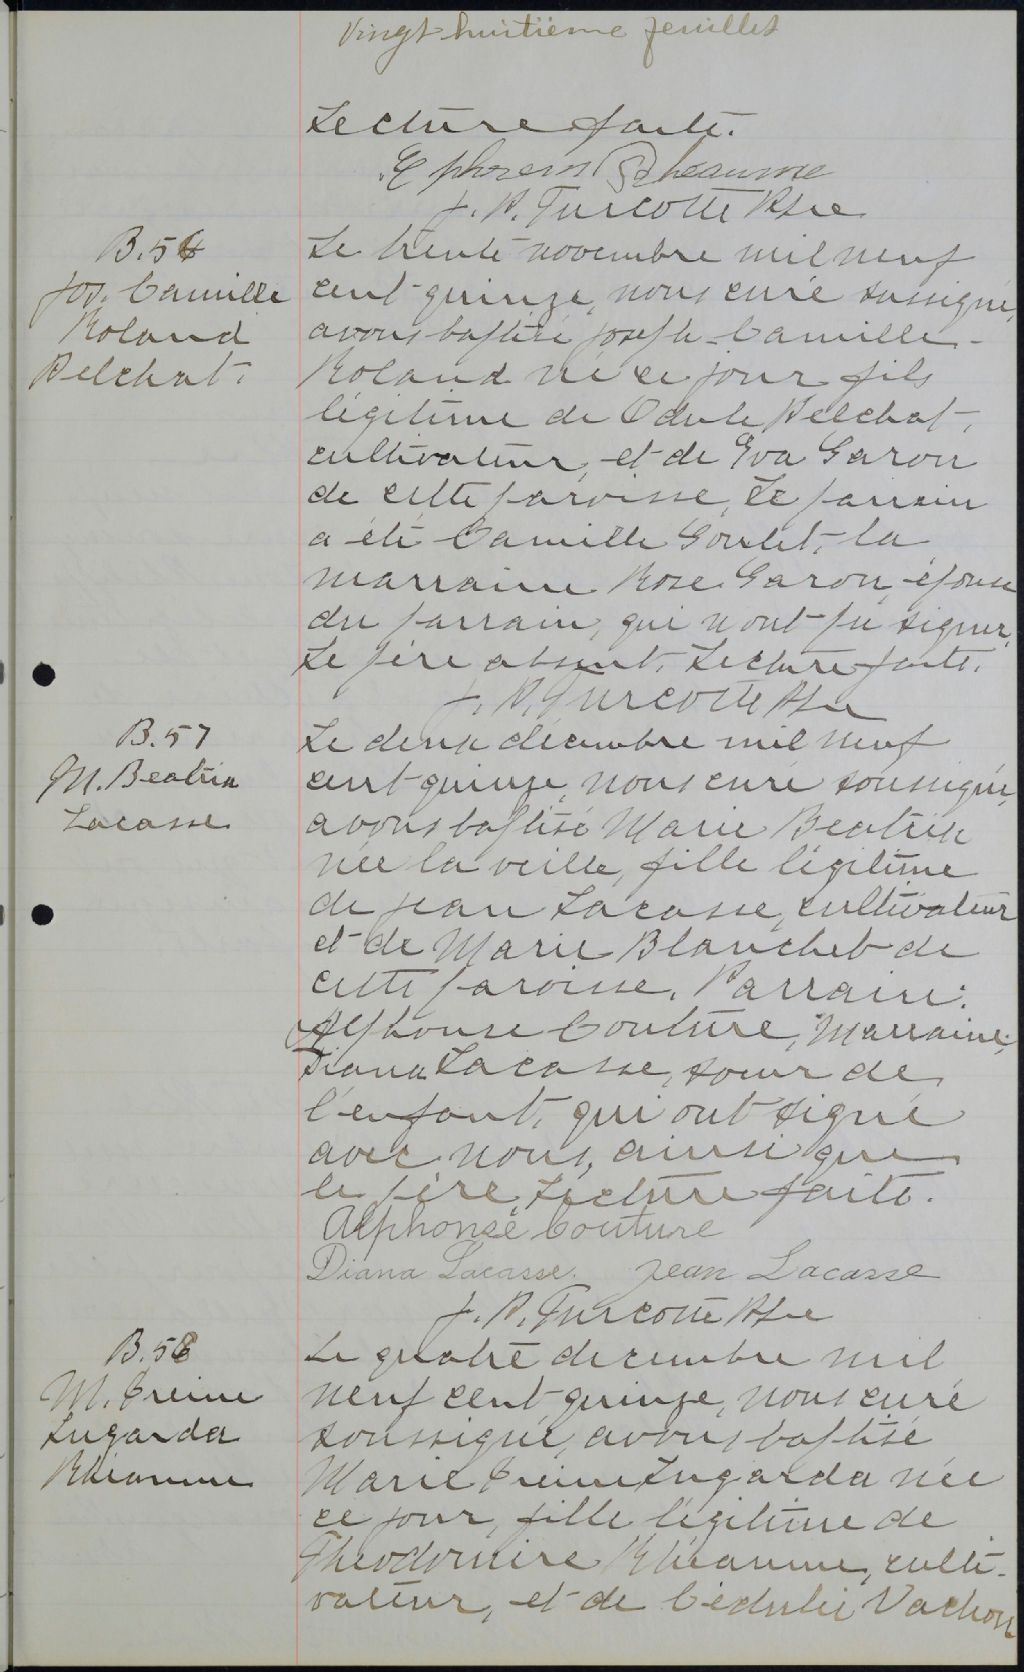 Vingt huitième feuillet
Lecture faite.
Ephrem Rheaume
J. A. Turcotte Ptre
B. 56
Jos. Camille
Roland
Pelchat.
Le trente novembre mil neuf
cent quinze, nous curé soussigné,
avons baptisé Joseph-Camille-
Roland né ce jour fils
légitime de Odule Pelchat,
cultivateur, et de Eva Garon
de cette paroisse, Le parrain
a été Camille Goulet, la
marraine Rose Garon, épouse
du parrain, qui n'ont pu signer,
Le père absent. Lecture faite.
J. A. Turcotte Ptre
B. 57
M. Beatrix
Lacasse
Le deux décembre mil neuf
cent quinze, nous curé soussigné,
avons baptisé Marie Beatrix
née la veille, fille légitime
de Jean Lacasse, cultivateur
et de Marie Blanchet de
cette paroisse. Parrain:
Alphonse Couture, Marraine:
Diana Lacasse, soeur de
l'enfant, qui ont signé
avec nous, ainsi que
le père, Lecture faite.
Alphonse Couture
Diana Lacasse. Jean Lacasse
J. A. Turcotte Ptre
B. 58
M. Irène
Lugarda
Rhéaume
Le quatre decembre mil
neuf cent quinze, nous curé
soussigné, avons baptisé
Marie Irène Lugarda née
ce jour, fille légitime de
Théodomire Rhéaume, culti-
vateur, et de Cédulie Vachon